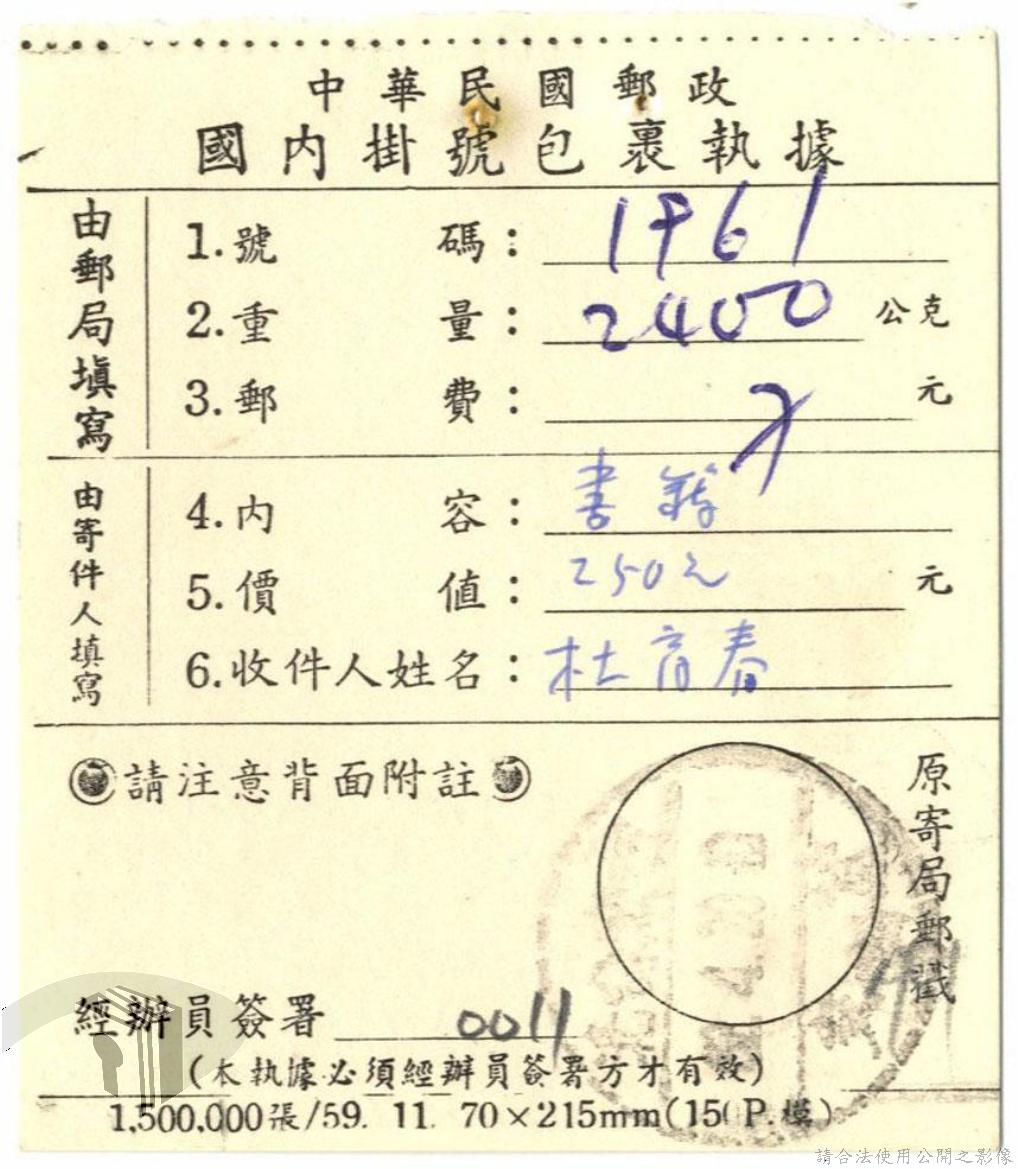 中華民國郵政
國內掛號包裹執據
由郵局填寫
1.號碼：1961
2.重量：2400 公克
3.郵費： 元
由寄件人填寫
4.內容：書籍
5.價值：250元 元
6.收件人姓名：杜育春
請注意背面附註
原寄局郵戳
經辦員簽署 0011
(本執據必須經辦員簽署方才有效)
1,500,000張/59. 11. 70×215mm(150 P.模)
請合法使用公開之影像